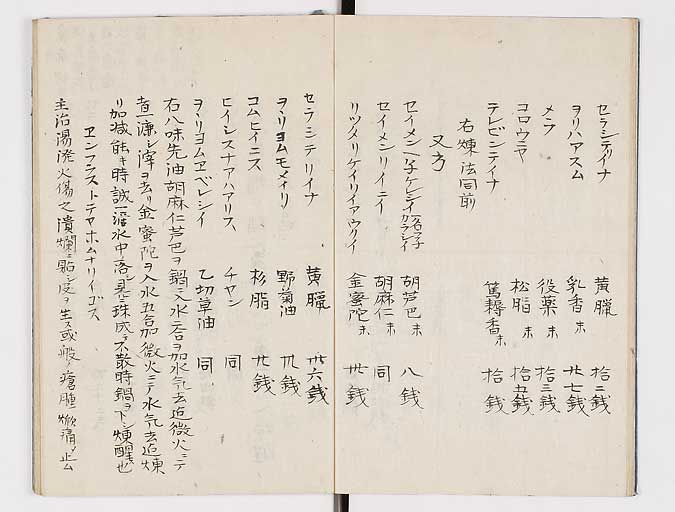 セラシテリイナ 黄臘 拾二銭
ヲリハアスム 乳香末 廿七銭
メラ 役薬末 拾三銭
コロウニヤ 松脂末 拾五銭
テレビンテイナ 篤耨香末 拾銭
右煉法同前
又方
セイメン 胡芦巴末 八銭
セイメンリイニイ 胡麻仁末 同
リツタリケイリイアウリイ 金蜜陀末 卅銭
セラシテリイナ 黄臘 卅六銭
ヲヽリヨムモメイリ 野菊油 銭
コムヒイニス 杉脂 廿銭
ヒイシスナアハアリス チヤン 同
ヲヽリヨムヱペレシイ 乙切草油 同
右八味先油胡麻仁芦巴ヲ鍋ニ入水二合ヲ加水気去迄微火ニテ
煮濾シ滓ヲ去リ金蜜陀ヲ入水五合加微火ニテ水気去迄煉
リ加减能キ時誠一滴水中ニ落シ玉珠成テ不散時鍋ヲ下シ煉醒也
ヱンフラストデアホムナリイゴス
主治湯溌火傷之潰爛ニ貼シ皮ヲ生ス或ハ瘡腫焮痛ヲ止ム